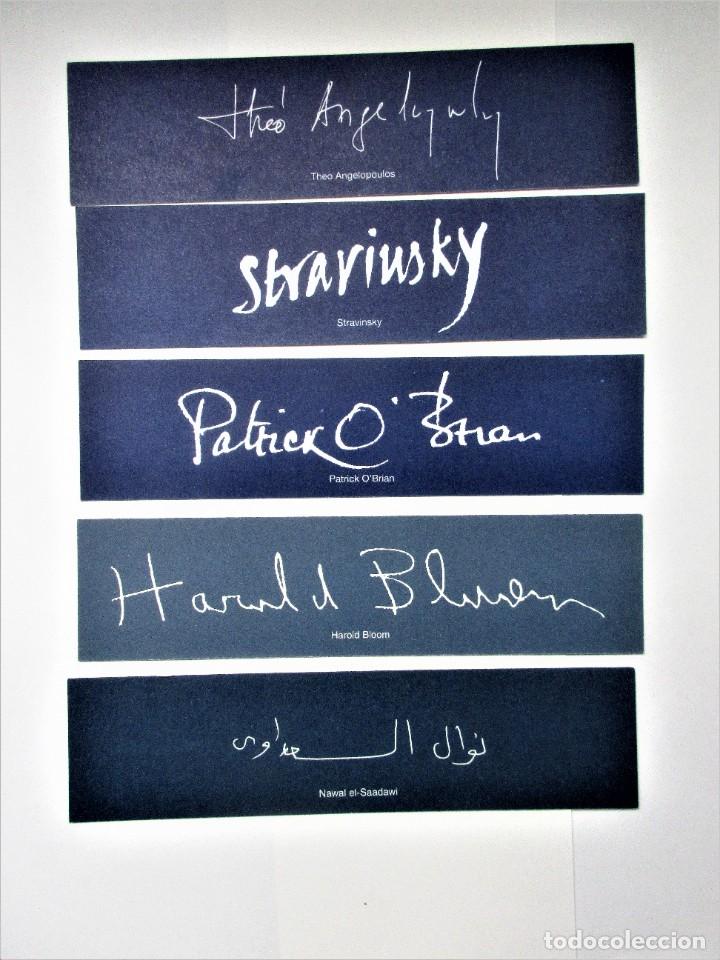 Theó Angelopoulos
Theo Angelopoulos
Stravinsky
Stravinsky
Patrick O'Brian
Patrick O'Brian
Harold Bloom
Harold Bloom
نوال السعداوى
Nawal el-Saadawi
todocoleccion